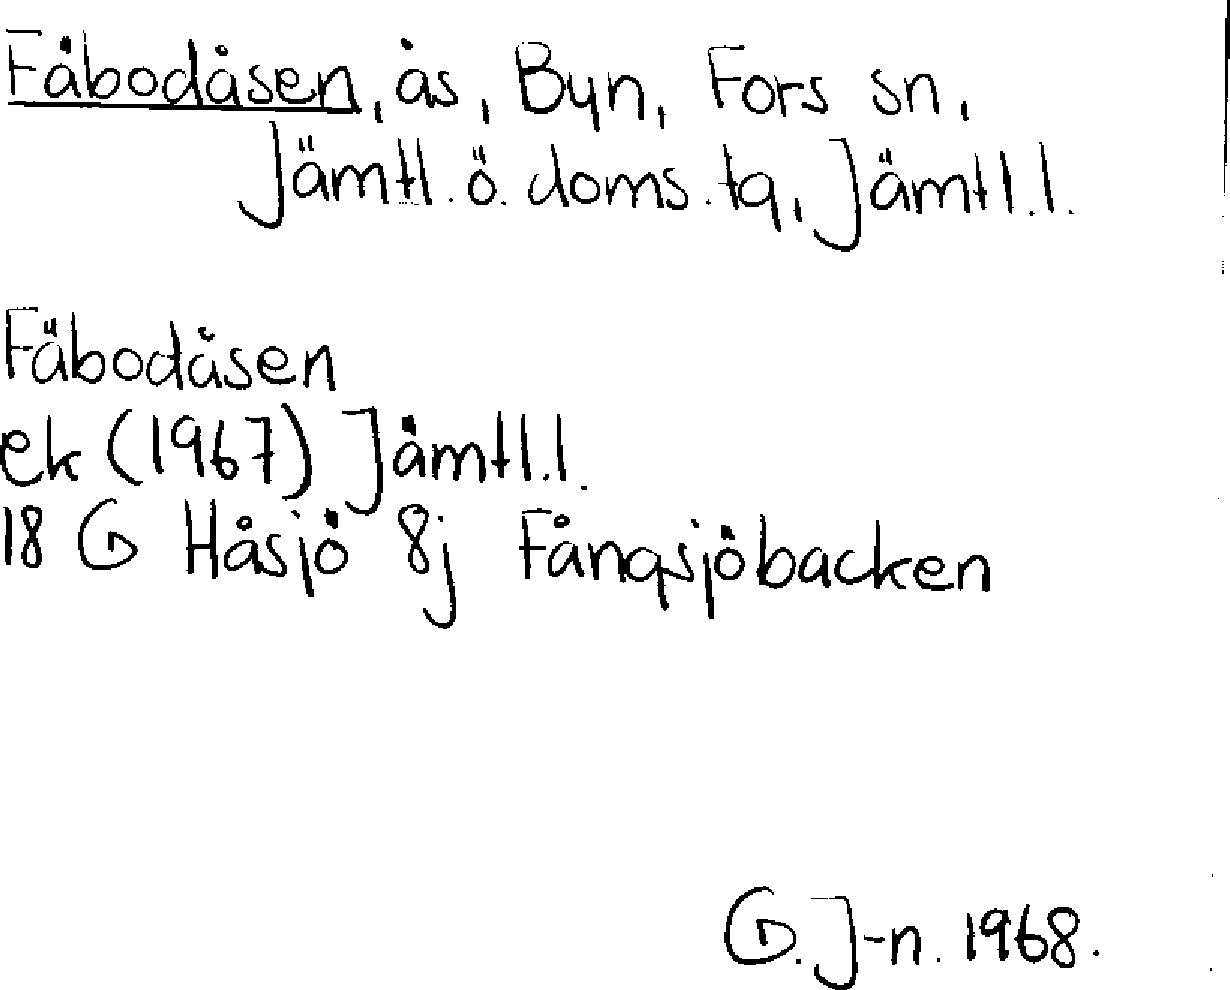 Fäbodåsen, ås, Byn, Fors sn,
Jämtl. ö. doms. tg, Jämtl. l.
Fäbodåsen
ek (1967) Jämtl. l.
18 G Håsjö 8j Fångsjöbacken
G. J-n. 1968.